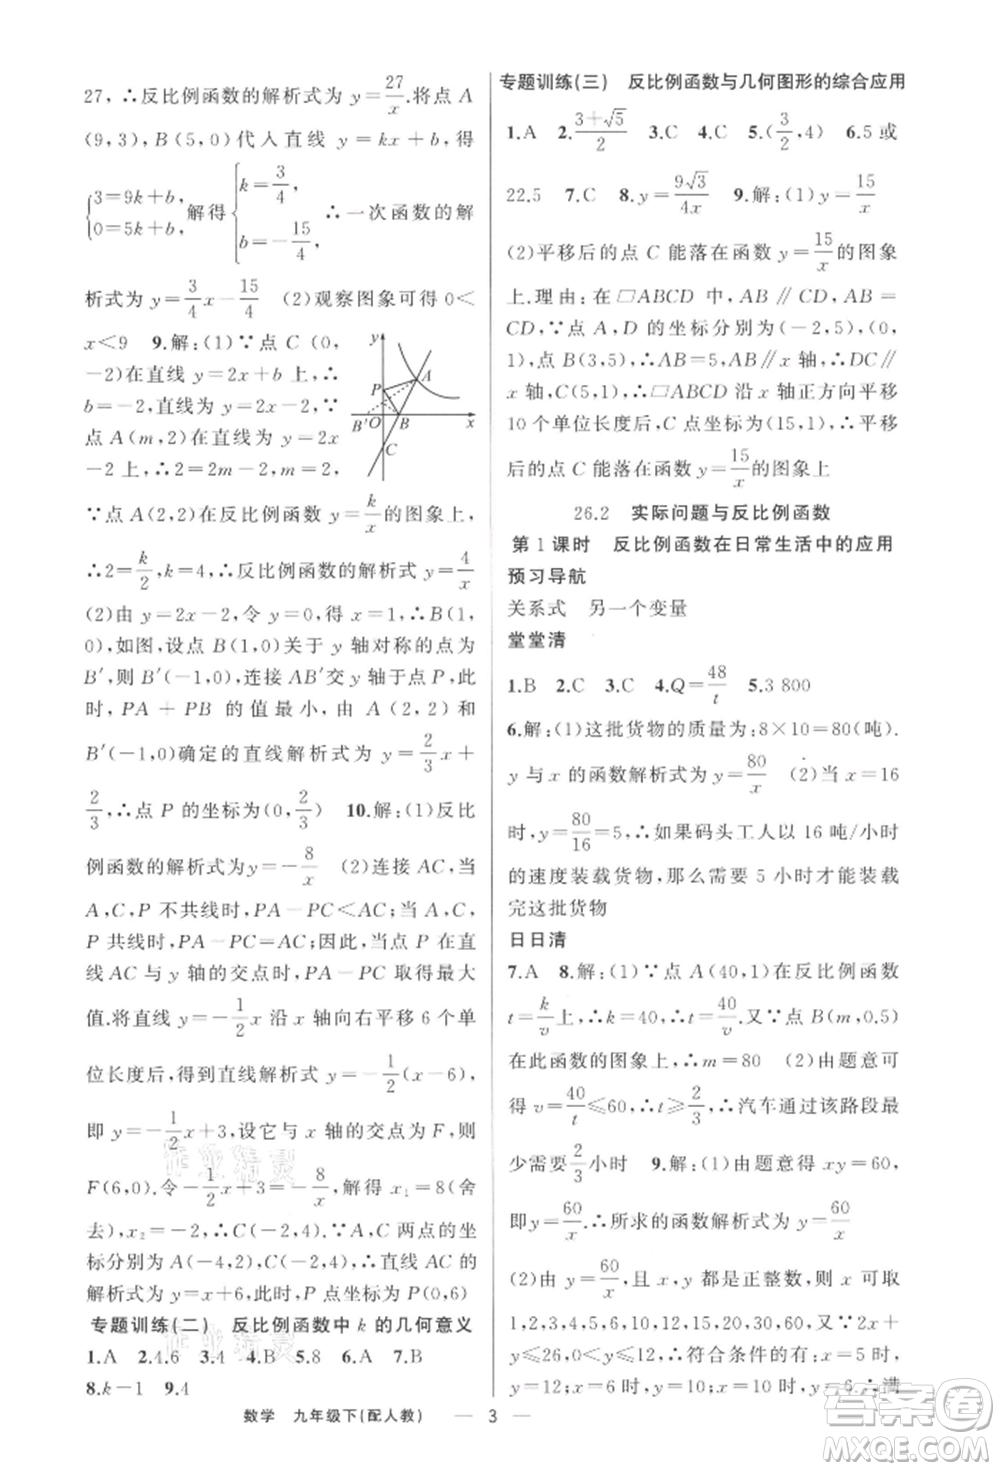 27, ∴反比例函数的解析式为 y=27/x.将点 A
(9,3), B(5,0)代人直线 y=kx+b, 得
{3=9k+b, 0=5k+b, 解得{k=3/4, b=-15/4, ∴一次函数的解
析式为 y=3/4x-15/4 (2)观察图象可得 0<
x<9 9.解:(1)∵点 C(0,
-2)在直线 y=2x+b 上,∴
b=-2,∴直线 y=2x-2,∵
点 A(m,2)在直线 y=2x
-2 上,∴2=2m-2,∴m=2,
y
P
A
B′ O B x
C
∵点 A(2,2)在反比例函数 y=k/x的图象上,
∴2=k/2,k=4,∴反比例函数的解析式 y=4/x
(2)由 y=2x-2,令 y=0,得 x=1,∴B(1,
0),如图,设点 B(1,0)关于 y 轴对称的点为
B′,则 B′(-1,0),连接 AB′交 y 轴于点 P,此
时, PA + PB 的值最小, 由 A(2,2)和
B′(-1,0)确定的直线解析式为 y=2/3x+
2/3,∴点 P 的坐标为(0,2/3) 10.解:(1)反比
例函数的解析式为y=-8/x (2)连接 AC,当
A,C,P 不共线时,PA-PC<AC;当 A,C,
P 共线时,PA-PC=AC;因此,当点 P 在直
线 AC 与 y 轴的交点时,PA-PC 取得最大
值.将直线 y=-1/2x 沿 x 轴向右平移 6 个单
位长度后,得到直线解析式 y=-1/2(x-6),
即 y=-1/2x+3,设它与 x 轴的交点为 F,则
F(6,0).令-1/2x+3=-8/x,解得 x₁=8(舍
去),x₂=-2,∴C(-2,4).∵A,C 两点的坐
标分别为 A(-4,2),C(-2,4),∴直线 AC 的
解析式为 y=x+6,此时,点 P 坐标为 P(0,6)
专题训练(二) 反比例函数中 k 的几何意义
1.A 2.4.6 3.4 4.B 5.8 6.A 7.B
8.k-1 9.4
专题训练(三) 反比例函数与几何图形的综合应用
1.A 2.(3+√5)/2 3.C 4.C 5.(3/2,4) 6.5 或
22.5 7.C 8.y=9√3/4x 9.解:(1)y=15/x
(2)平移后的点 C 能落在函数 y=15/x的图象
上.理由:在 □ABCD 中,AB∥CD,AB=
CD,∵点 A,D 的坐标分别为(-2,5),(0,
1),点 B(3,5),∴AB=5,AB∥x轴,∴DC∥
x 轴,∴C(5,1),∴□ABCD 沿 x 轴正方向平移
10 个单位长度后,C 点坐标为(15,1),∴平移
后的点 C 能落在函数 y=15/x的图象上
26.2 实际问题与反比例函数
第 1 课时 反比例函数在日常生活中的应用
预习导航
关系式 另一个变量
堂堂清
1.B 2.C 3.C 4.Q=48/t 5.3 800
6.解:(1)这批货物的质量为:8×10=80(吨).
y 与 x 的函数解析式为 y=80/x (2)当 x=16
时,y=80/16=5,∴如果码头工人以 16 吨/小时
的速度装载货物,那么需要 5 小时才能装载
完这批货物
日日清
7.A 8.解:(1)∵点 A(40,1)在反比例函数
t=k/v上,∴k=40,∴t=40/v.又∵点 B(m,0.5)
在此函数的图象上,∴m=80 (2)由题意可
得 v=40/t≤60,∴t≥2/3,∴汽车通过该路段最
少需要2/3小时 9.解:(1)由题意得 xy=60,
即y=60/x.∴所求的函数解析式为 y=60/x
(2)由 y=60/x,且 x,y 都是正整数,x 可取
1,2,3,4,5,6,10,12,15,20,30,60.∵2x+
y≤26,0<y≤12,∴符合条件的有:x=5
时,y=12;x=6 时,y=10;x=10 时,y=6,∴满
数学 九年级下(配人教) — 3 —
作业精灵
作业精灵
答案圈
MXQE.COM